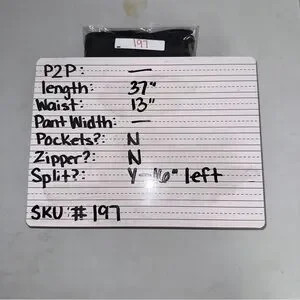 197
P2P: —
length: 37"
Waist: 13"
Pant Width: —
Pockets?: N
Zipper?: N
Split?: Y – 16" left
SKU: # 197